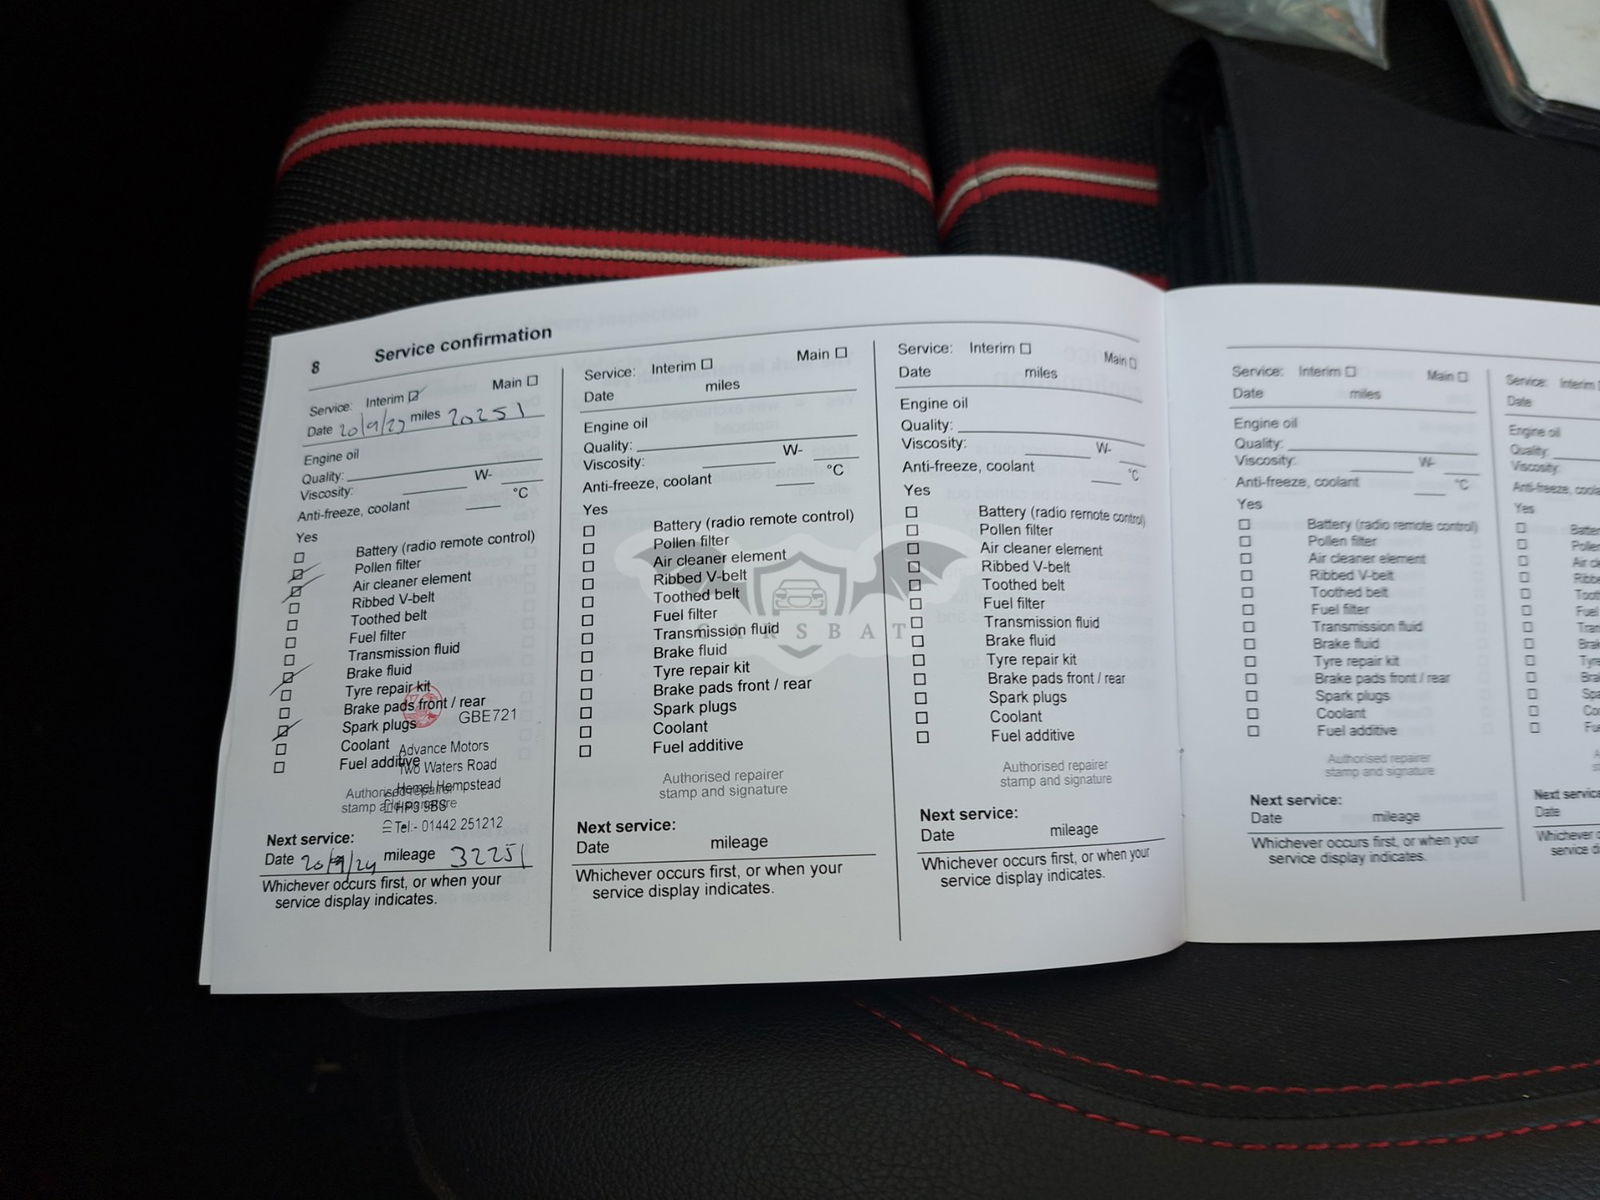 8 Service confirmation
Service: Interim ☑ Main ☐
Date 20/9/23 miles 20251
Engine oil
Quality:
Viscosity: W-
Anti-freeze, coolant °C
Yes
Battery (radio remote control)
Pollen filter
Air cleaner element
Ribbed V-belt
Toothed belt
Fuel filter
Transmission fluid
Brake fluid
Tyre repair kit
Brake pads front / rear
Spark plugs
Coolant
Fuel additive
GBE721
Advance Motors
Two Waters Road
Hemel Hempstead
HP3 9BS
Tel:- 01442 251212
Authorised repairer
stamp and signature
Next service:
Date 20/9/24 mileage 32251
Whichever occurs first, or when your
service display indicates.
Service: Interim ☐ Main ☐
Date miles
Engine oil
Quality:
Viscosity: W-
Anti-freeze, coolant °C
Yes
Battery (radio remote control)
Pollen filter
Air cleaner element
Ribbed V-belt
Toothed belt
Fuel filter
Transmission fluid
Brake fluid
Tyre repair kit
Brake pads front / rear
Spark plugs
Coolant
Fuel additive
Authorised repairer
stamp and signature
Next service:
Date mileage
Whichever occurs first, or when your
service display indicates.
CARSBAT
Service: Interim ☐ Main ☐
Date miles
Engine oil
Quality:
Viscosity: W-
Anti-freeze, coolant °C
Yes
Battery (radio remote control)
Pollen filter
Air cleaner element
Ribbed V-belt
Toothed belt
Fuel filter
Transmission fluid
Brake fluid
Tyre repair kit
Brake pads front / rear
Spark plugs
Coolant
Fuel additive
Authorised repairer
stamp and signature
Next service:
Date mileage
Whichever occurs first, or when your
service display indicates.
Service: Interim ☐ Main ☐
Date miles
Engine oil
Quality:
Viscosity: W-
Anti-freeze, coolant °C
Yes
Battery (radio remote control)
Pollen filter
Air cleaner element
Ribbed V-belt
Toothed belt
Fuel filter
Transmission fluid
Brake fluid
Tyre repair kit
Brake pads front / rear
Spark plugs
Coolant
Fuel additive
Authorised repairer
stamp and signature
Next service:
Date mileage
Whichever occurs first, or when your
service display indicates.
Service: Interim
Date
Engine oil
Quality:
Viscosity:
Anti-freeze,
Yes
Next service
Date
Whichever
service